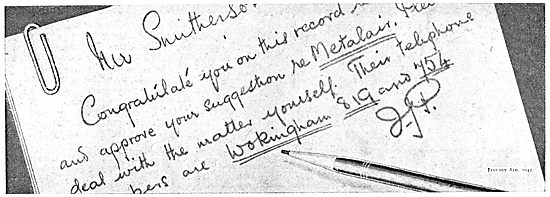 Mr Smitherso
Congratulate you on this record
and approve your suggestion re Metalair.
deal with the matter yourself. Their telephone
bers are Wokingham 819 and 754
J.P.
January 8th, 1942